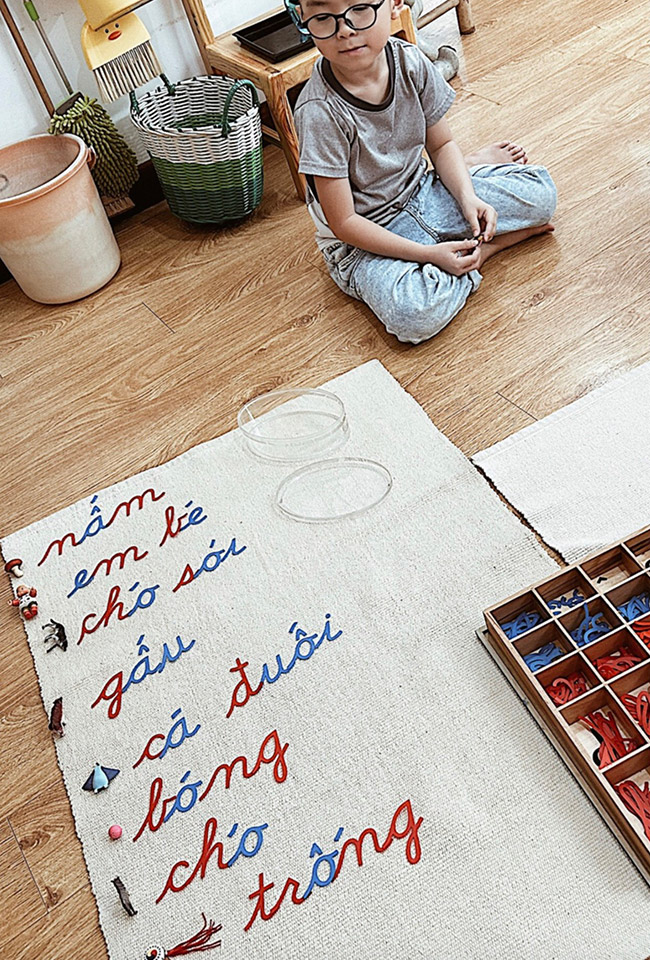 nấm
em bé
chó sói
gấu
cá đuối
bóng
chó
trống